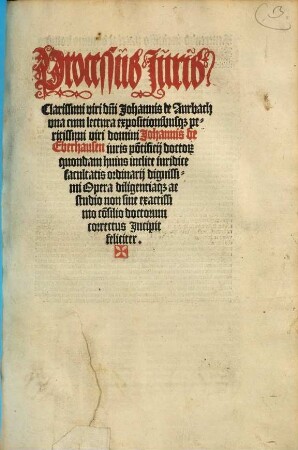 3.
Processus Juris
Clarissimi viri dñi Johannis de Aurbach
vna cum lectura expositionibusqz pe-
ritissimi viri domini Johannis de
Eberhausen iuris põtificij doctorꝝ
quondam huius inclite iuridice
facultatis ordinarij dignissi-
mi Opera diligentiaqz ac
studio non sine exactissi
mo cõsilio doctorum
correctus Incipit
feliciter.